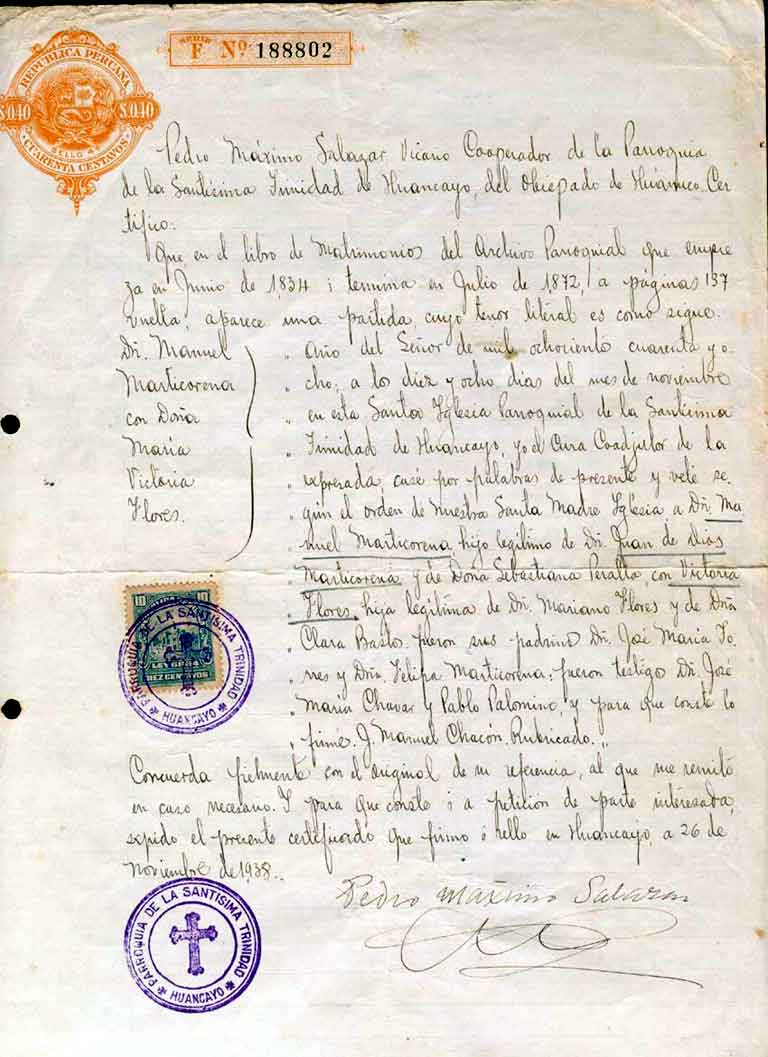 SERIE F Nº 188802
REPUBLICA PERUANA
S.0.40 S.0.40
SELLO 4º
CUARENTA CENTAVOS
Pedro Máximo Salazar Vicario Cooperador de la Parroquia
de la Santísima Trinidad de Huancayo, del Obispado de Huánuco. Cer-
tifico:
Que en el libro de Matrimonios del Archivo Parroquial que empie
za en Junio de 1,834 i termina en Julio de 1,872, a páginas 137
vuelta, aparece una partida, cuyo tenor literal es como sigue:
Dn. Manuel
Marticorena
con Doña
María
Victoria
Flores.
" Año del Señor de mil ochociento cuarenta y o-
" cho; a los diez y ocho dias del mes de noviembre
" en esta Santa Yglesia Parroquial de la Santísima
" Trinidad de Huancayo, yo el Cura Coadjutor de la
" expresada casé por palabras de presente y velé se-
" gún el orden de Nuestra Santa Madre Yglesia a Dn. Ma
" nuel Marticorena, hijo legítimo de Dn. Juan de Dios
" Marticorena y de Doña Sebastiana Peralta, con Victoria
" Flores, hija legítima de Dn. Mariano Flores y de Dña
" Clara Bastos fueron sus padrino Dn. José Maria To-
" rres y Dña. Felipa Marticorena; fueron testigo Dn. José
" Maria Chavar y Pablo Palomino, y para que conste lo
" firmé. J. Manuel Chacón. Rubricado. "
DIEZ CENTAVOS
PARROQUIA DE LA SANTÍSIMA TRINIDAD
HUANCAYO
Concuerda fielmente con el original de mi referencia, al que me remito
en caso necesario. I para que conste i a petición de parte interesada,
expido el presente certificado que firmo i sello en Huancayo, a 26 de
Noviembre de 1,938..
Pedro Máximo Salazar
PARROQUIA DE LA SANTÍSIMA TRINIDAD
HUANCAYO